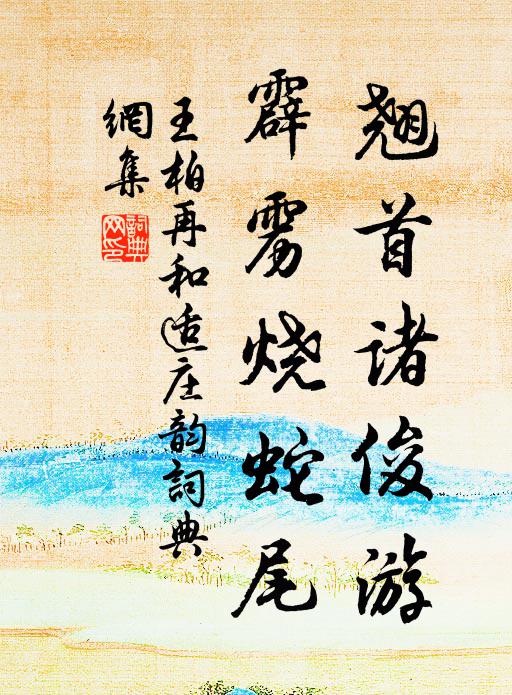 翘首诸俊游
霹雳烧蛇尾
王柏再和适庄韵詞典
網集
詞典網印